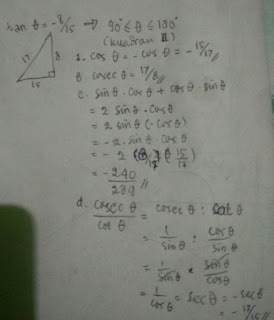 tan θ = -8/15 → 90° ≤ θ ≤ 180°
(kuadran II)
17 8
15
1. cos θ = -cos θ = -15/17 //
b. cosec θ = 17/8 //
c. sin θ . cos θ + cos θ . sin θ
= 2 sin θ . cos θ
= 2 sin θ (-cos θ)
= -2 . sin θ . cos θ
= -2 (8/17) (15/17)
= -240/289 //
d. cosec θ / cot θ = cosec θ : cot θ
= 1/sin θ : cos θ/sin θ
= 1/sin θ × sin θ/cos θ
= 1/cos θ = sec θ = -sec θ
= -17/15 //